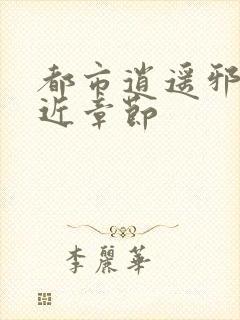 都市逍遥邪
近章節
李麗華